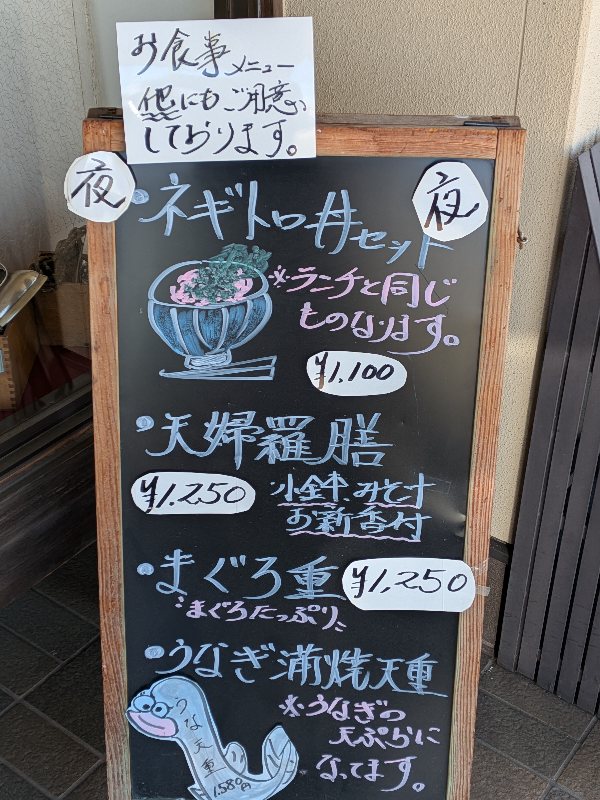 お食事メニュー
他にもご用意
しております。
夜
夜
・ネギトロ丼セット
※ランチと同じ
ものなります。
¥1,100
・天婦羅膳
¥1,250
小鉢、みそ汁
お新香付
・まぐろ重
¥1,250
まぐろたっぷり
・うなぎ蒲焼天重
※うなぎの
天ぷらに
なってます。
うな天重
1,580円